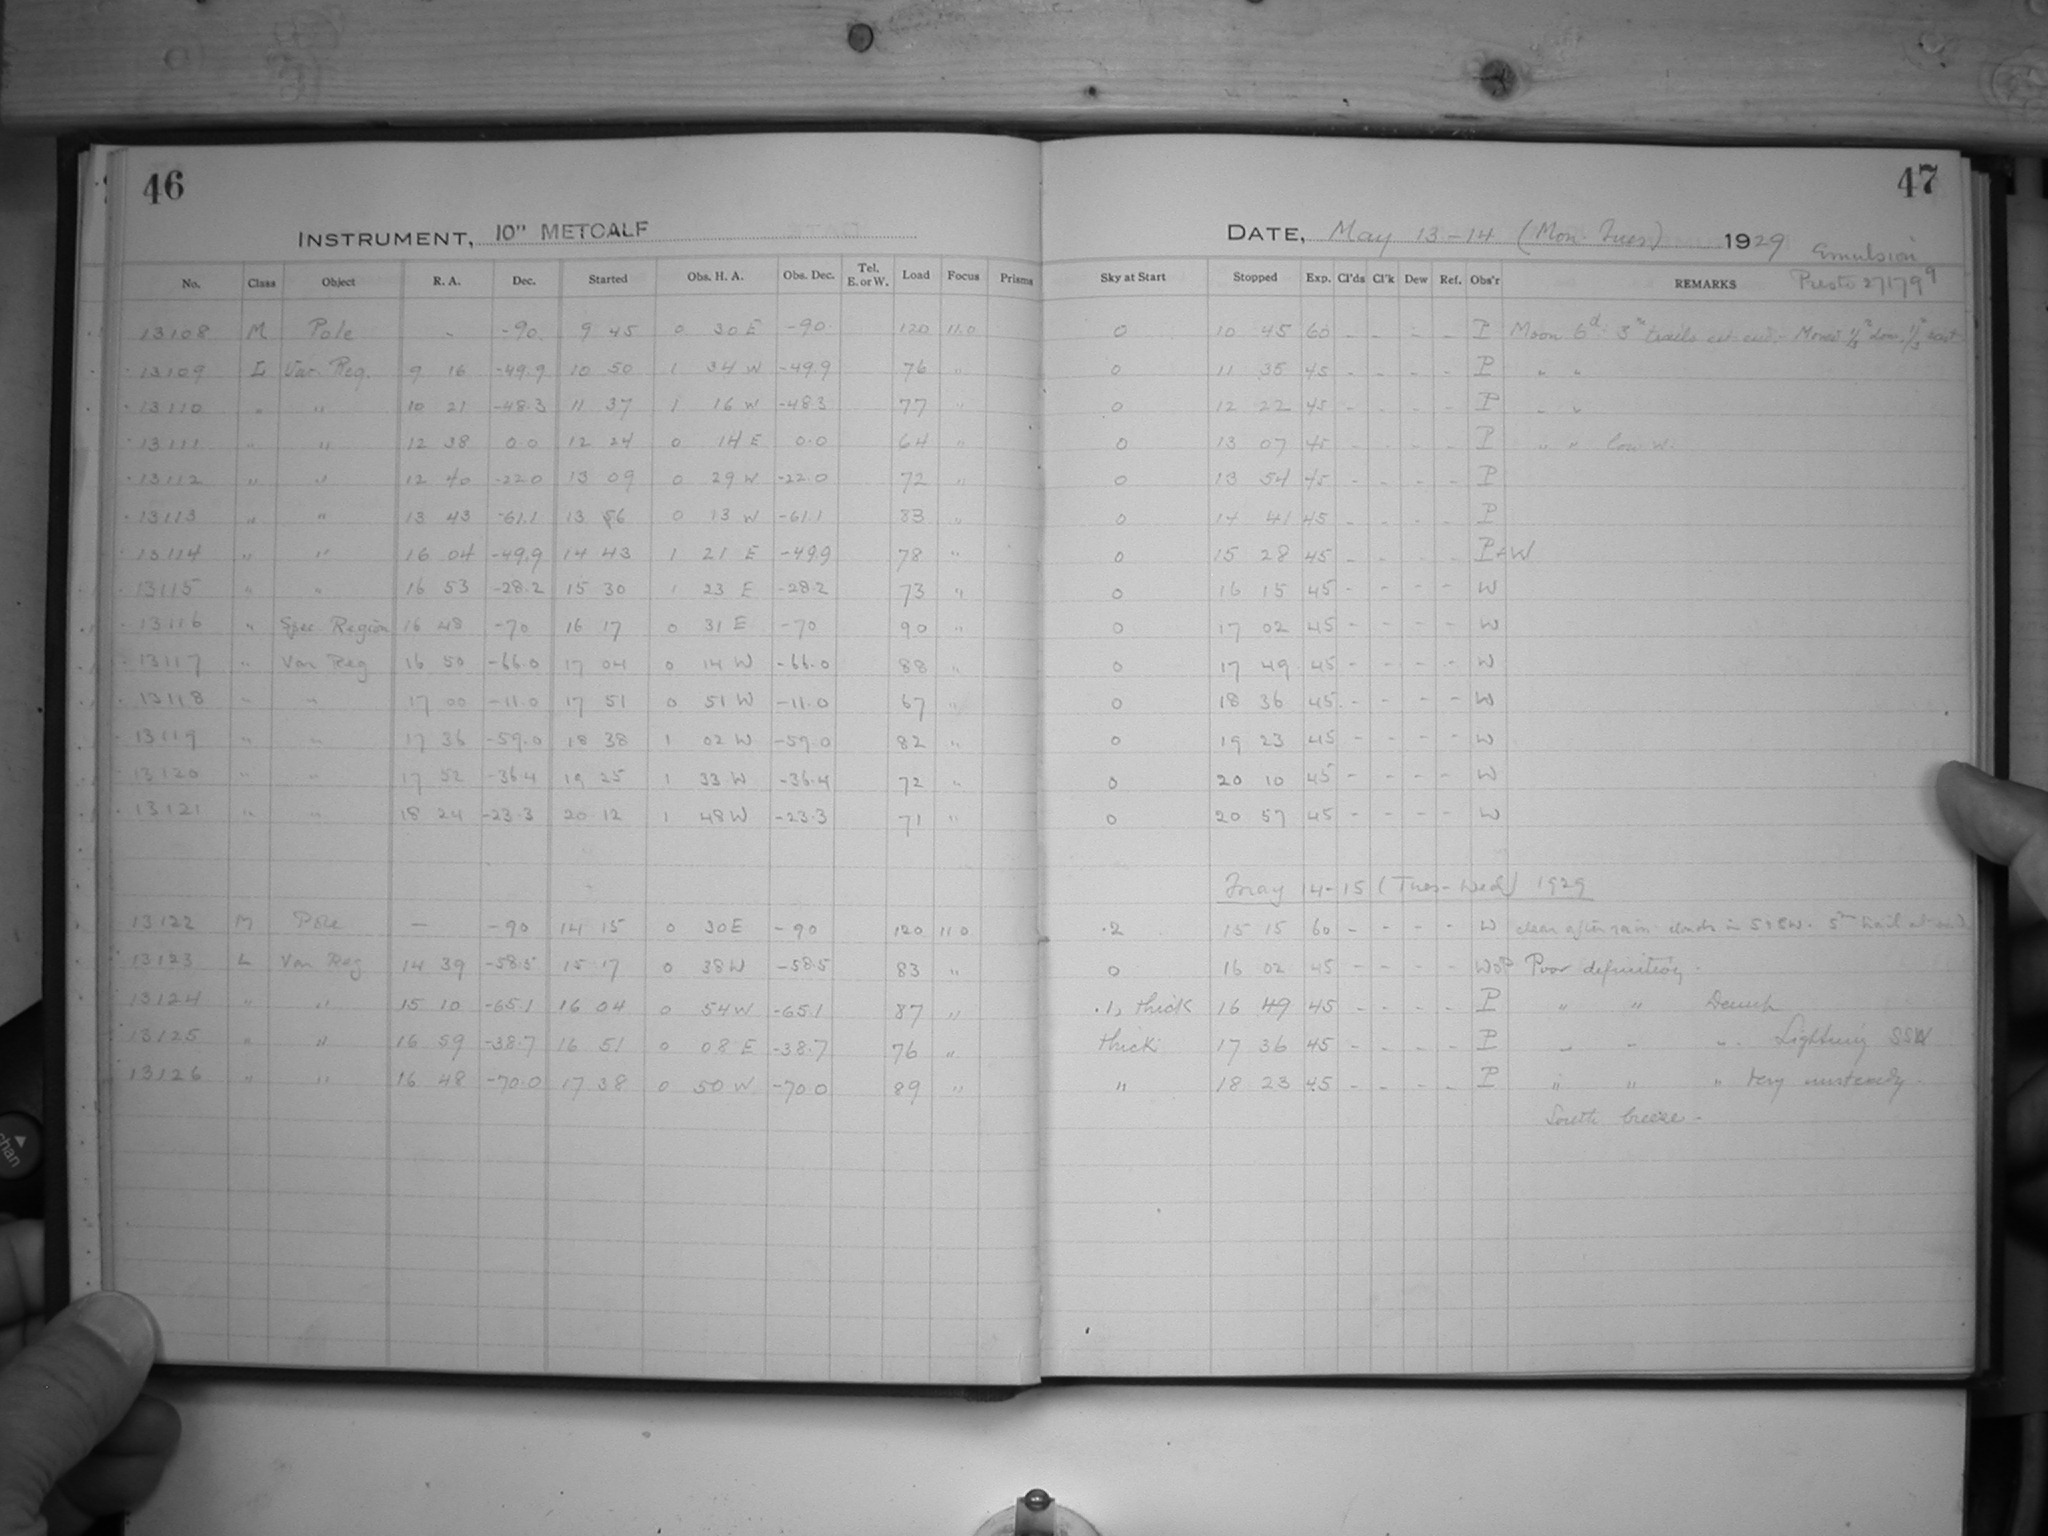 46
47
INSTRUMENT, 10" METCALF
DATE, May 13-14 (Mon-Tues) 1929 Emulsion
Presto 27179
No. Class Object R. A. Dec. Started Obs. H. A. Obs. Dec. Tel. E. or W. Load Focus Prisms Sky at Start Stopped Exp. Cl'ds Cl'k Dew Ref. Obs'r REMARKS
13108 M Pole - -90 9 45 0 30 E -90 120 11.0 0 10 45 60 - - - - P Moon 6d. 3m trails at end - Moved
13109 L Var. Reg. 9 16 -49.9 10 50 1 34 W -49.9 76 " 0 11 35 45 - - - - P " "
13110 " " 10 21 -48.3 11 37 1 16 W -48.3 77 " 0 12 22 45 - - - - P " "
13111 " " 12 38 0.0 12 24 0 14 E 0.0 64 " 0 13 07 45 - - - - P " " low W.
13112 " " 12 40 -22.0 13 09 0 29 W -22.0 72 " 0 13 54 45 - - - - P
13113 " " 13 43 -61.1 13 56 0 13 W -61.1 83 " 0 14 41 45 - - - - P
13114 " " 16 04 -49.9 14 43 1 21 E -49.9 78 " 0 15 28 45 - - - - P+W
13115 " " 16 53 -28.2 15 30 1 23 E -28.2 73 " 0 16 15 45 - - - - W
13116 " Spec Region 16 48 -70 16 17 0 31 E -70 90 " 0 17 02 45 - - - - W
13117 " Var Reg 16 50 -66.0 17 04 0 14 W -66.0 88 " 0 17 49 45 - - - - W
13118 " " 17 00 -11.0 17 51 0 51 W -11.0 67 " 0 18 36 45 - - - - W
13119 " " 17 36 -59.0 18 38 1 02 W -59.0 82 " 0 19 23 45 - - - - W
13120 " " 17 52 -36.4 19 25 1 33 W -36.4 72 " 0 20 10 45 - - - - W
13121 " " 18 24 -23.3 20 12 1 48 W -23.3 71 " 0 20 57 45 - - - - W
May 14-15 (Tues-Wed) 1929
13122 M Pole — -90 14 15 0 30 E -90 120 11 0 .2 15 15 60 - - - - W clear after rain clouds in S+SW. 5m trail at end
13123 L Var Reg 14 39 -58.5 15 17 0 38 W -58.5 83 " 0 16 02 45 - - - - W+P Poor definition.
13124 " " 15 10 -65.1 16 04 0 54 W -65.1 87 " .1, thick 16 49 45 - - - - P " " Dewish
13125 " " 16 59 -38.7 16 51 0 08 E -38.7 76 " thick 17 36 45 - - - - P " " " Lightning SSW
13126 " " 16 48 -70.0 17 38 0 50 W -70.0 89 " " 18 23 45 - - - - P " " " Very unsteady.
South breeze -